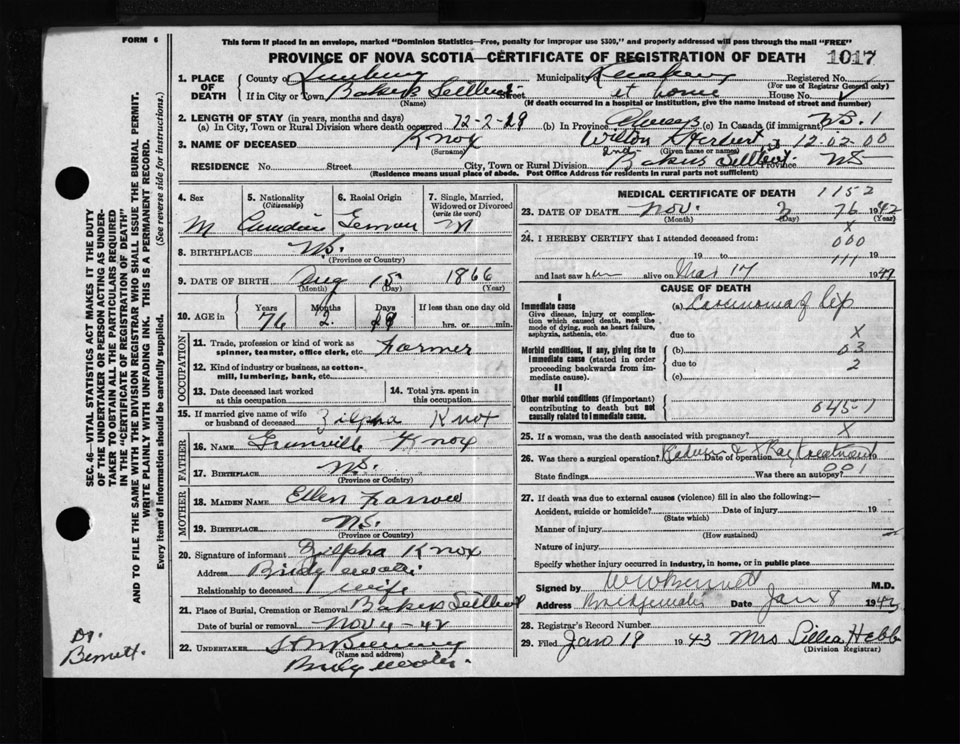 FORM 6
This form if placed in an envelope, marked "Dominion Statistics—Free, penalty for improper use $300," and properly addressed will pass through the mail "FREE"
PROVINCE OF NOVA SCOTIA—CERTIFICATE OF REGISTRATION OF DEATH 1017
1. PLACE OF DEATH County of Lunenburg Municipality Lunenburg Registered No.
(For use of Registrar General only)
If in City or Town Bakers Settlement Street at home House No.
(Name) (If death occurred in a hospital or institution, give the name instead of street and number)
2. LENGTH OF STAY (in years, months and days)
(a) In City, Town or Rural Division where death occurred 72-2-29 (b) In Province Always (c) In Canada (if immigrant) NS. 1
3. NAME OF DECEASED Knox Wilton Herbert 12.02.00
(Surname) (Given name or names)
RESIDENCE No. Street City, Town or Rural Division Bakers Settlement Province NS
(Residence means usual place of abode. Post Office Address for residents in rural parts not sufficient)
4. Sex M
5. Nationality (Citizenship) Canadian
6. Racial Origin German
7. Single, Married, Widowed or Divorced (write the word) M
8. BIRTHPLACE NS.
(Province or Country)
9. DATE OF BIRTH Aug 15 1866
(Month) (Day) (Year)
10. AGE in Years 76 Months 2 Days If less than one day old hrs. or min.
OCCUPATION
11. Trade, profession or kind of work as spinner, teamster, office clerk, etc. Farmer
12. Kind of industry or business, as cotton-mill, lumbering, bank, etc.
13. Date deceased last worked at this occupation
14. Total yrs. spent in this occupation
15. If married give name of wife or husband of deceased Zilpha Knox
FATHER
16. NAME Grenville Knox
17. BIRTHPLACE NS.
(Province or Country)
MOTHER
18. MAIDEN NAME Ellen
19. BIRTHPLACE NS.
(Province or Country)
20. Signature of informant Zilpha Knox
Address Bridgewater
Relationship to deceased wife
21. Place of Burial, Cremation or Removal Bakers Settlement
Date of burial or removal Nov 4-42
22. UNDERTAKER
(Name and address)
Bridgewater
MEDICAL CERTIFICATE OF DEATH 1152
23. DATE OF DEATH Nov. 76 1942
(Month) (Day) (Year)
24. I HEREBY CERTIFY that I attended deceased from: X
000
19 to 111 19
and last saw him alive on Mar 17 1942
CAUSE OF DEATH
I
Immediate cause (a) Carcinoma of lip
Give disease, injury or complication which caused death, not the mode of dying, such as heart failure, asphyxia, asthenia, etc.
due to X
Morbid conditions, if any, giving rise to immediate cause (stated in order proceeding backwards from immediate cause). (b) 03
due to 2
(c)
II
Other morbid conditions (if important) contributing to death but not causally related to immediate cause. 045-1
25. If a woman, was the death associated with pregnancy? X
26. Was there a surgical operation? Radium & X Ray treatment Date of operation
State findings Was there an autopsy? 001
27. If death was due to external causes (violence) fill in also the following:—
Accident, suicide or homicide? Date of injury 19
(State which)
Manner of injury
(How sustained)
Nature of injury
Specify whether injury occurred in industry, in home, or in public place
Signed by W W Bennett M.D.
Address Bridgewater Date Jan 8 1943
28. Registrar's Record Number
29. Filed Jan 19 1943 Mrs Lillia Hebb
(Division Registrar)
SEC. 46—VITAL STATISTICS ACT MAKES IT THE DUTY
OF THE UNDERTAKER OR PERSON ACTING AS UNDER-
TAKER TO OBTAIN ALL THE PARTICULARS REQUIRED
IN THE "CERTIFICATE OF REGISTRATION OF DEATH"
AND TO FILE THE SAME WITH THE DIVISION REGISTRAR WHO SHALL ISSUE THE BURIAL PERMIT.
WRITE PLAINLY WITH UNFADING INK. THIS IS A PERMANENT RECORD.
Every item of information should be carefully supplied. (See reverse side for instructions).
Dr.
Bennett.